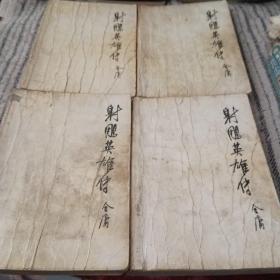 射雕英雄传 金庸
射雕英雄传 金庸
射雕英雄传 金庸
射雕英雄传 金庸